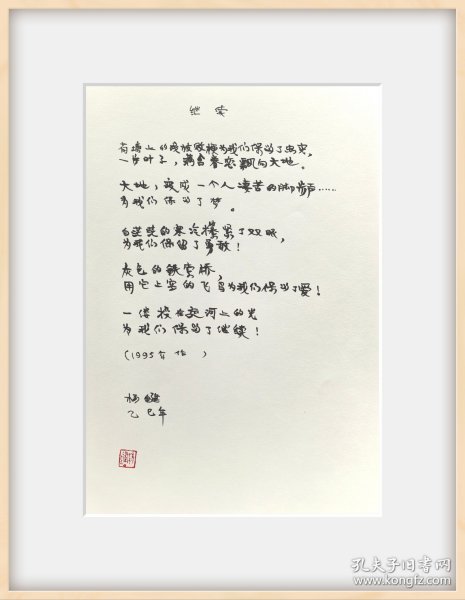 继续
上的 为我们保留了忠实,
一片叶子,满含眷恋飘向大地。
大地,变成一个人凄苦的脚步声……
为我们保留了梦。
白茫茫的蒸汽 紧了双眼,
为我们保留了勇敢!
灰色的铁索桥,
用它上空的飞鸟为我们保留了爱!
一缕投在 河上的光
为我们保留了继续!
(1995年作)
杨键
乙巳年
孔夫子旧书网
www.kongfz.com